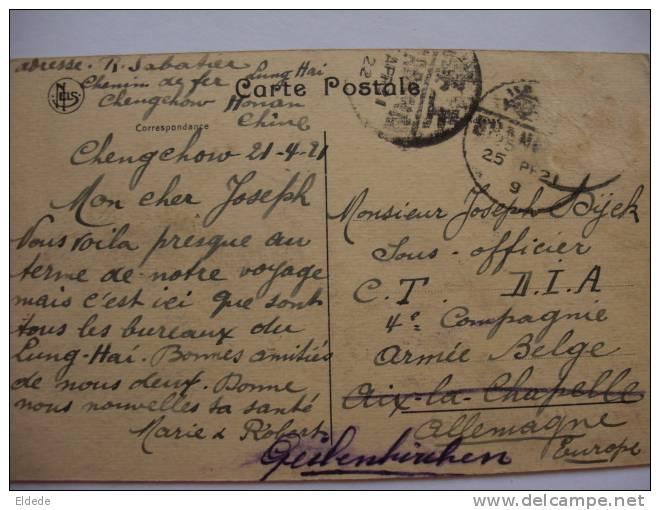 adresse. R. Sabatier
Chemin de fer Lung Hai
Chengchow Honan
Chine
NELS
Carte Postale
Correspondance
Chengchow 21-4-21
Mon cher Joseph
Nous voila presque au
terme de notre voyage
mais c'est ici que sont
tous les bureaux du
Lung-Hai. Bonnes amitiés
de nous deux. Donne
nous nouvelles ta santé
Marie & Robert
Monsieur Joseph Bijek
Sous-officier
C.T. D.I.A
4e Compagnie
Armée Belge
Aix-la-Chapelle
Allemagne
Europe
Geilenkirchen
22
25
21
9
Eldede
delcampe.net